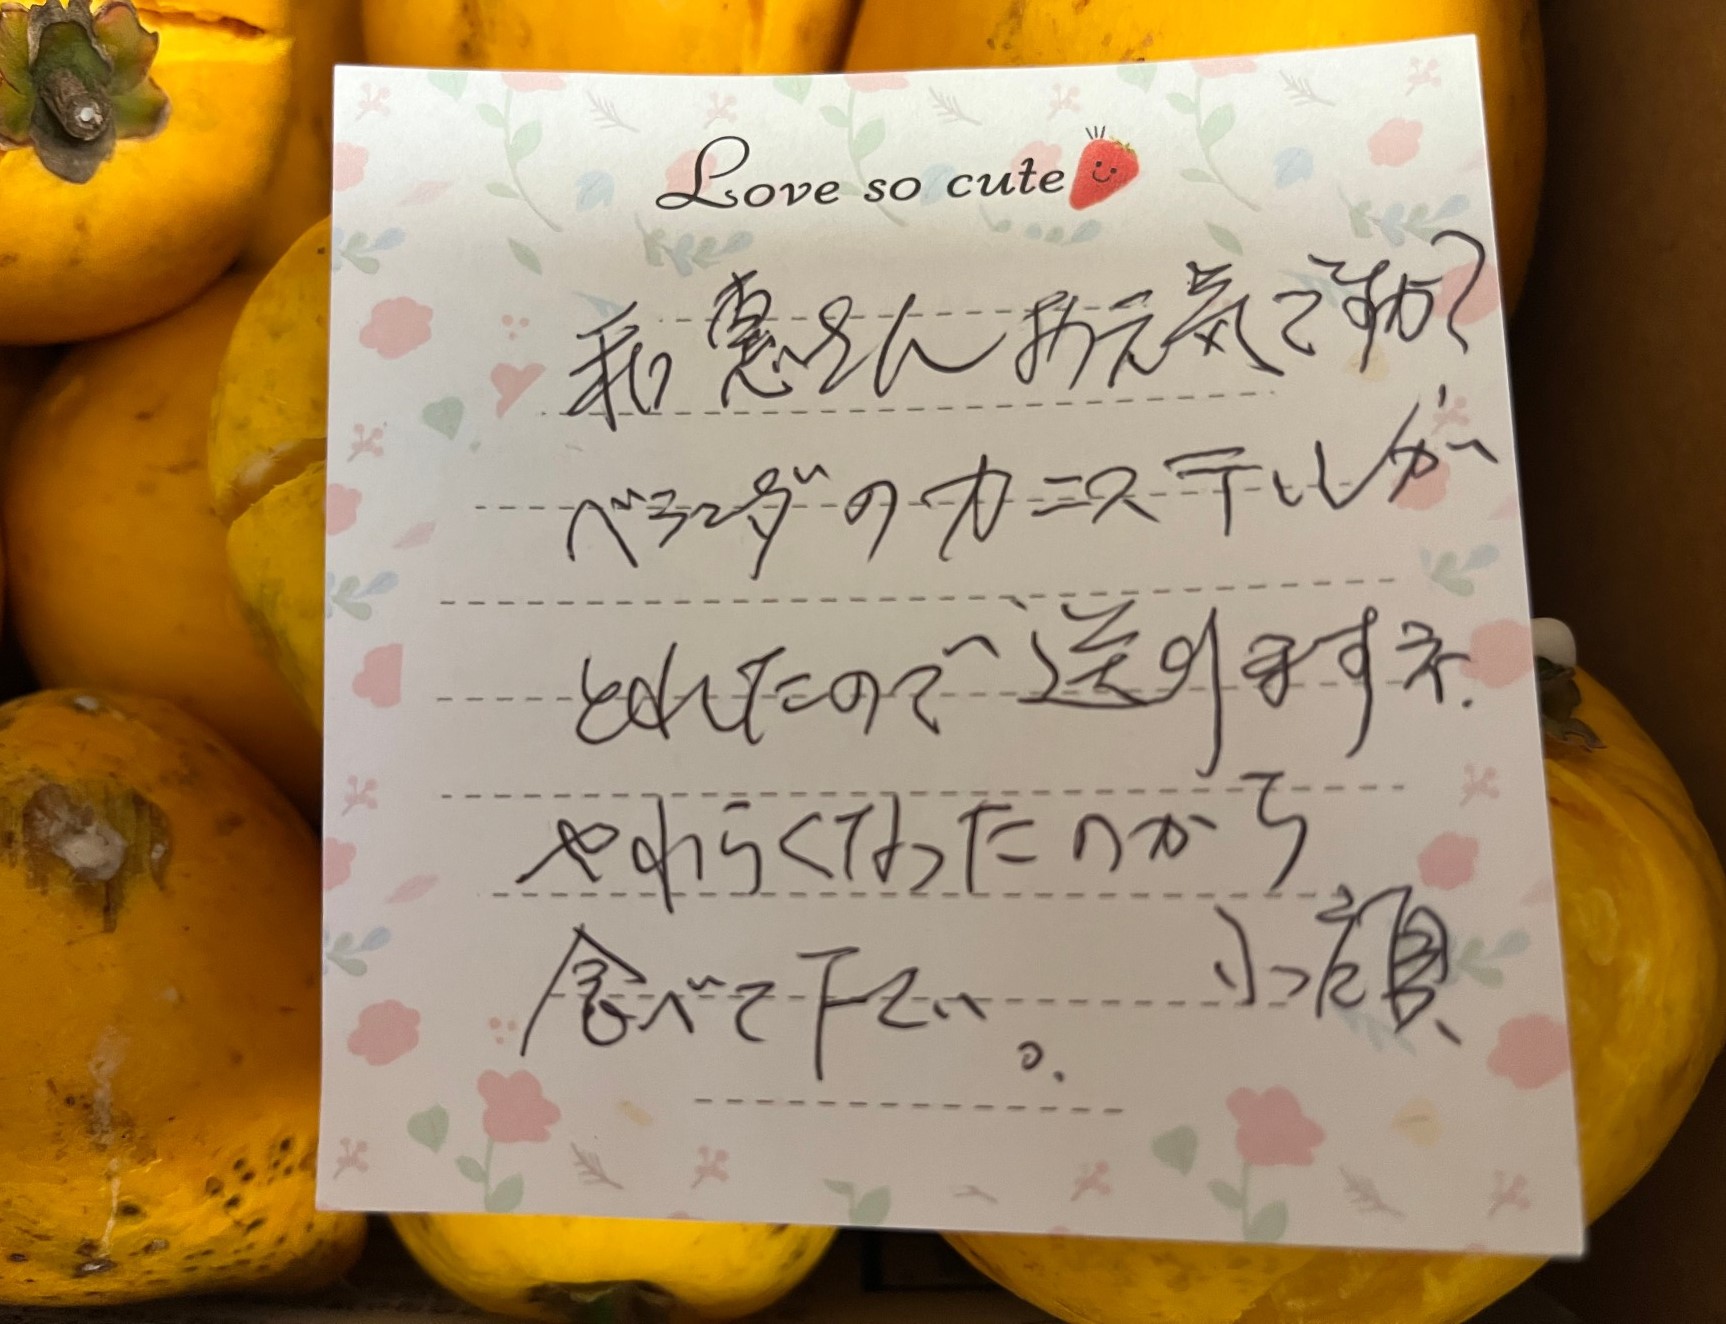 Love so cute
和恵さんお元気ですか?
ベランダのカニステルが
とれたので送りますネ.
やわらくなったのから
食べて下さい。